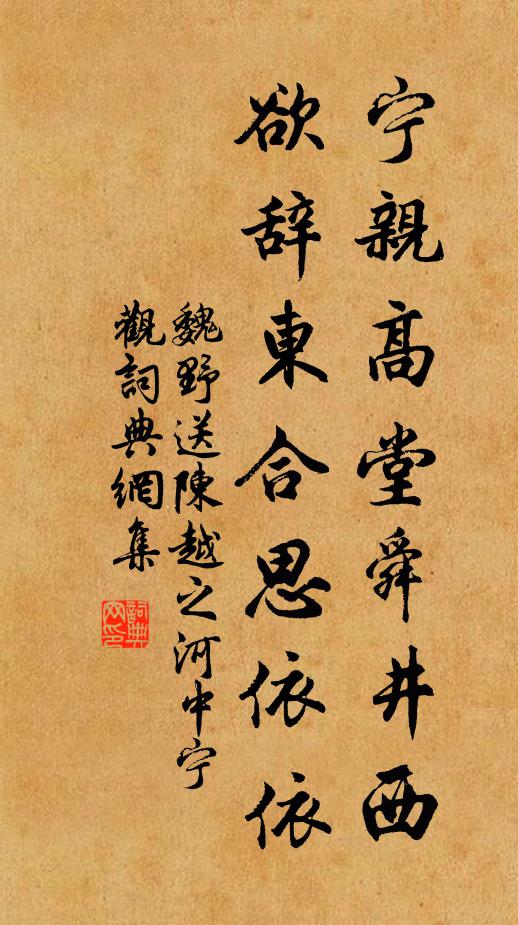 宁親高堂舜井西
欲辞東合思依依
魏野送陳越之河中宁
觀詞典網集
詞典
网印